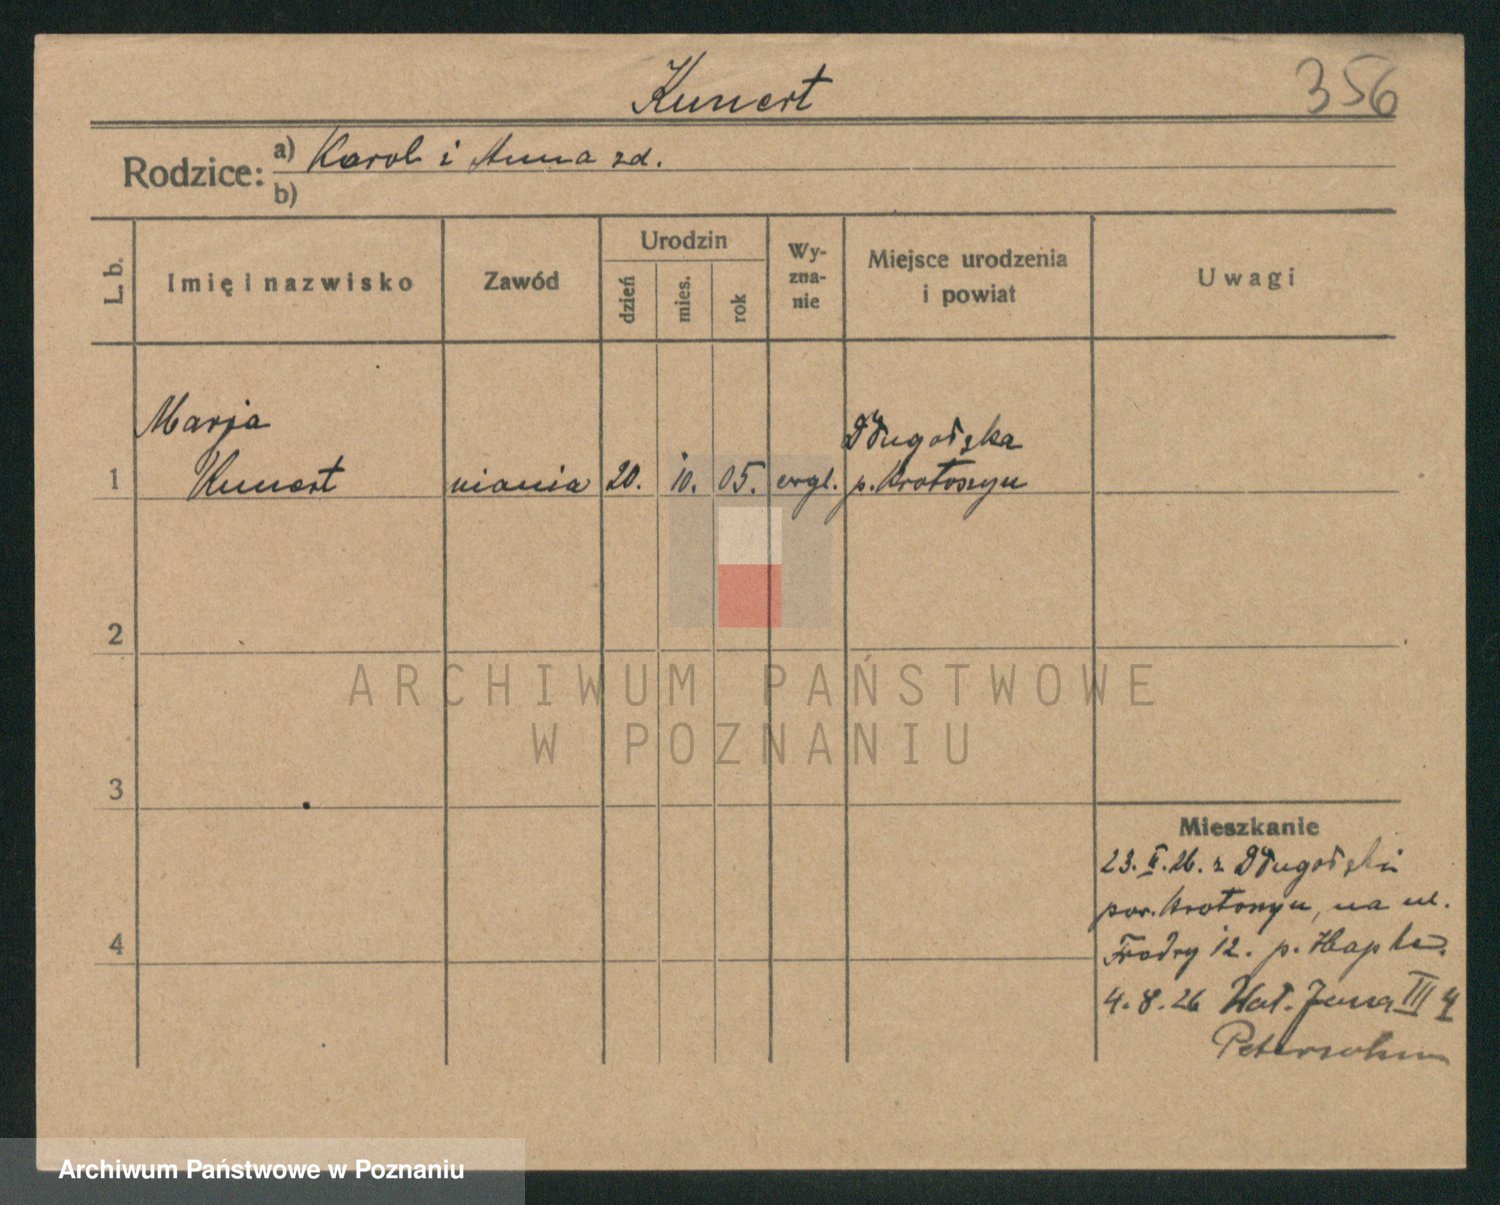 Kunert
356
Rodzice:
a) Karol i Anna zd.
b)
L. b.
Imię i nazwisko
Zawód
Urodzin
dzień
mies.
rok
Wy-
zna-
nie
Miejsce urodzenia
i powiat
Uwagi
1
Marja
Kunert
niania
20.
10.
05.
ewgl.
Długołęka
p. Krotoszyn
2
3
4
Mieszkanie
23. II. 26. z Długołęki
pow. Krotoszyn, na ul.
Fredry 12. p.
4. 8. 26
Petersohn
ARCHIWUM PAŃSTWOWE
W POZNANIU
Archiwum Państwowe w Poznaniu